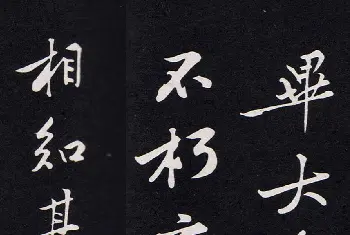 畢大
不朽
相知甚